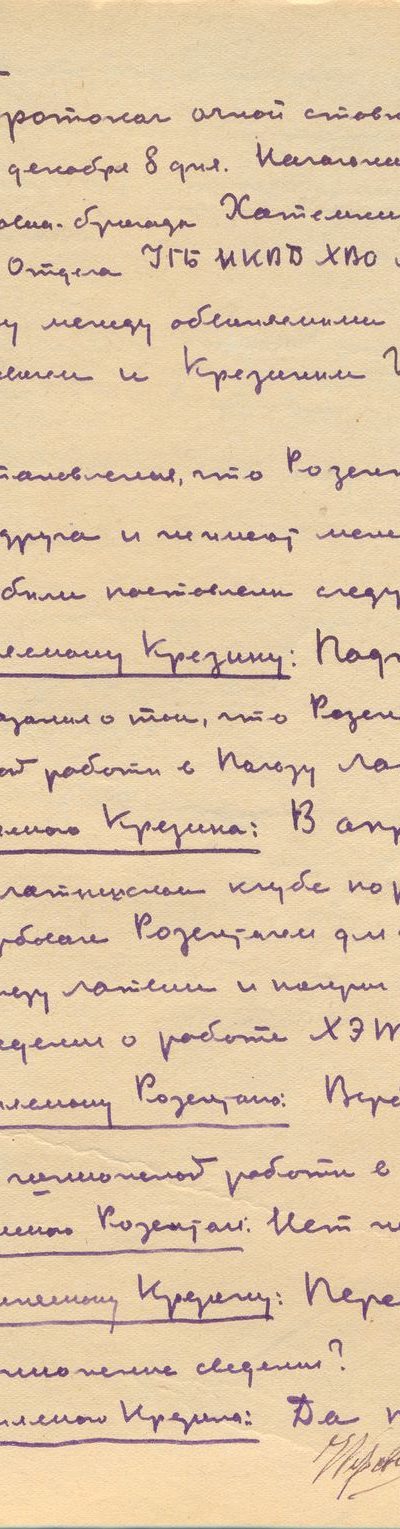 ротокол очной ставк
декабря 8 дня. Начальни
бригада Хатемкин
Отдела УГБ НКВД ХВО
у между обвиняемыми
и Крезиным
становления, что Розен
друга и не имеют
были поставлены следу
яемому Крезину: Подт
о том, что Розен
ой работы в пользу ла
яемого Крезина: В апр
латышском клубе по
рбован Розенталем для
зу латвии и получи
ведения о работе ХЭ
яемому Розенталю:
шпионской работы в
Розенталя: Нет не
няемому Крезину: Пере
шпионские сведения?
няемого Крезина: Да